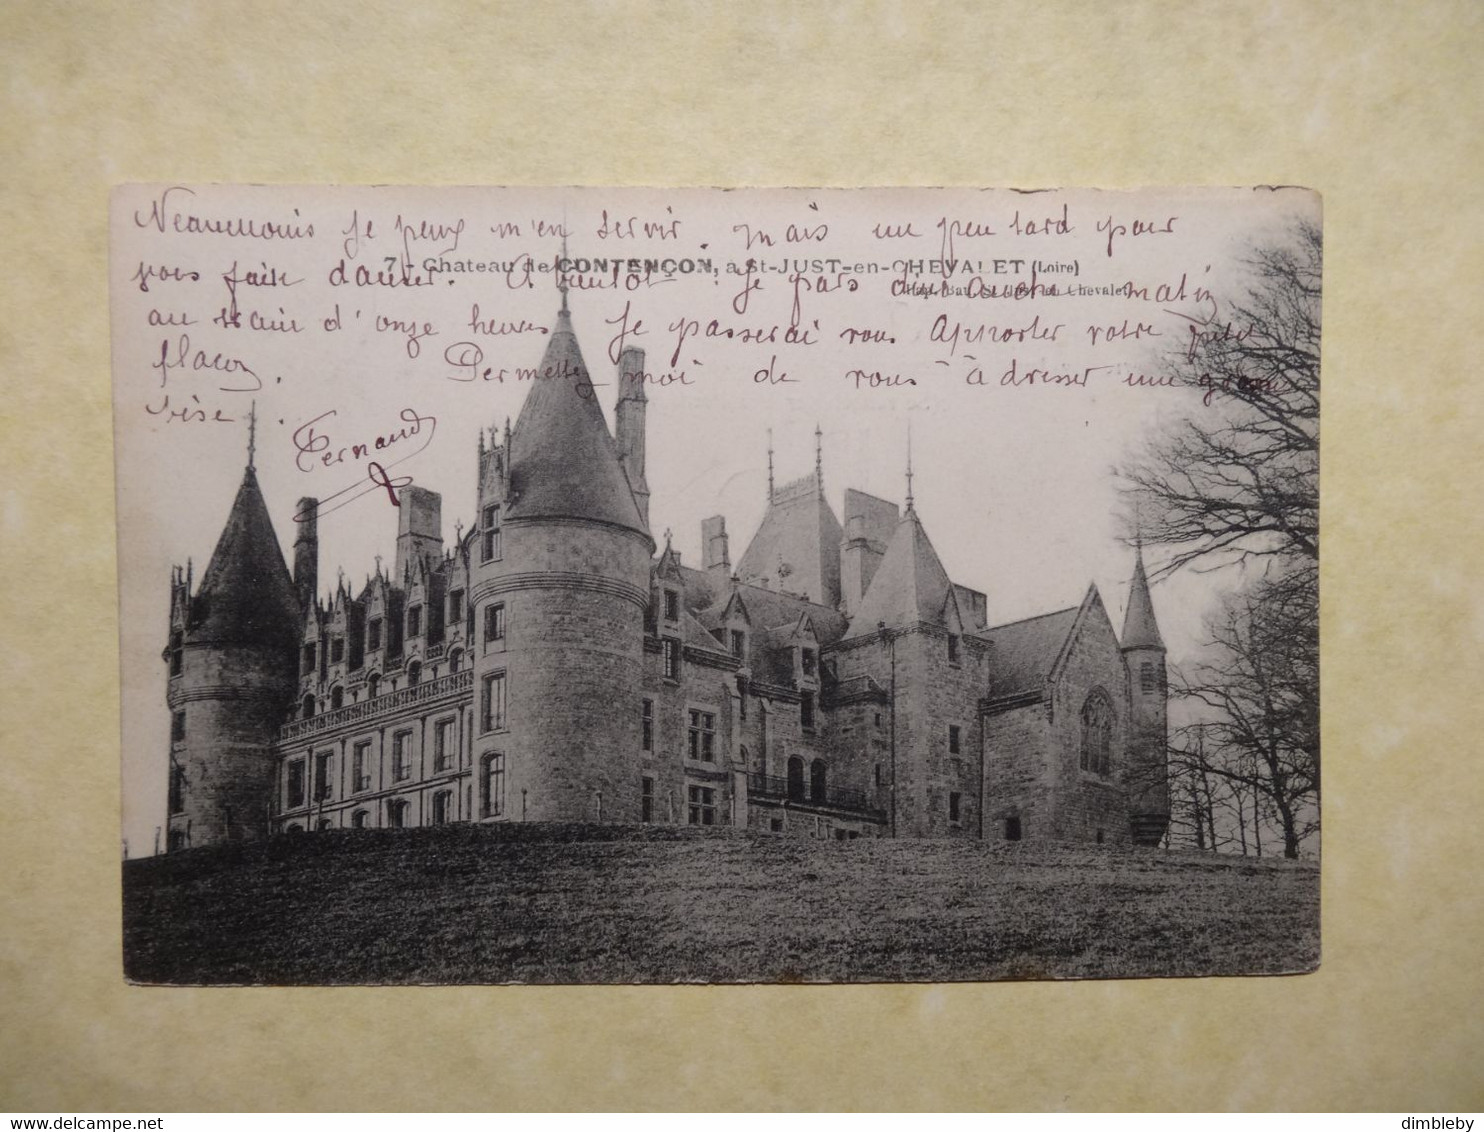 Neaumouis je peux m'en servir. mais un peu tard pour
7 - Chateau de CONTENÇON, à St-JUST-en-CHEVALET (Loire)
vous faire danser. A bientôt. Je pars demain matin
St-Just-en-Chevalet
au train d'onze heures Je passerai vous apporter votre petit
flacon. Permettez moi de vous adresser une grosse
bise.
Fernand
delcampe.net
dimbleby